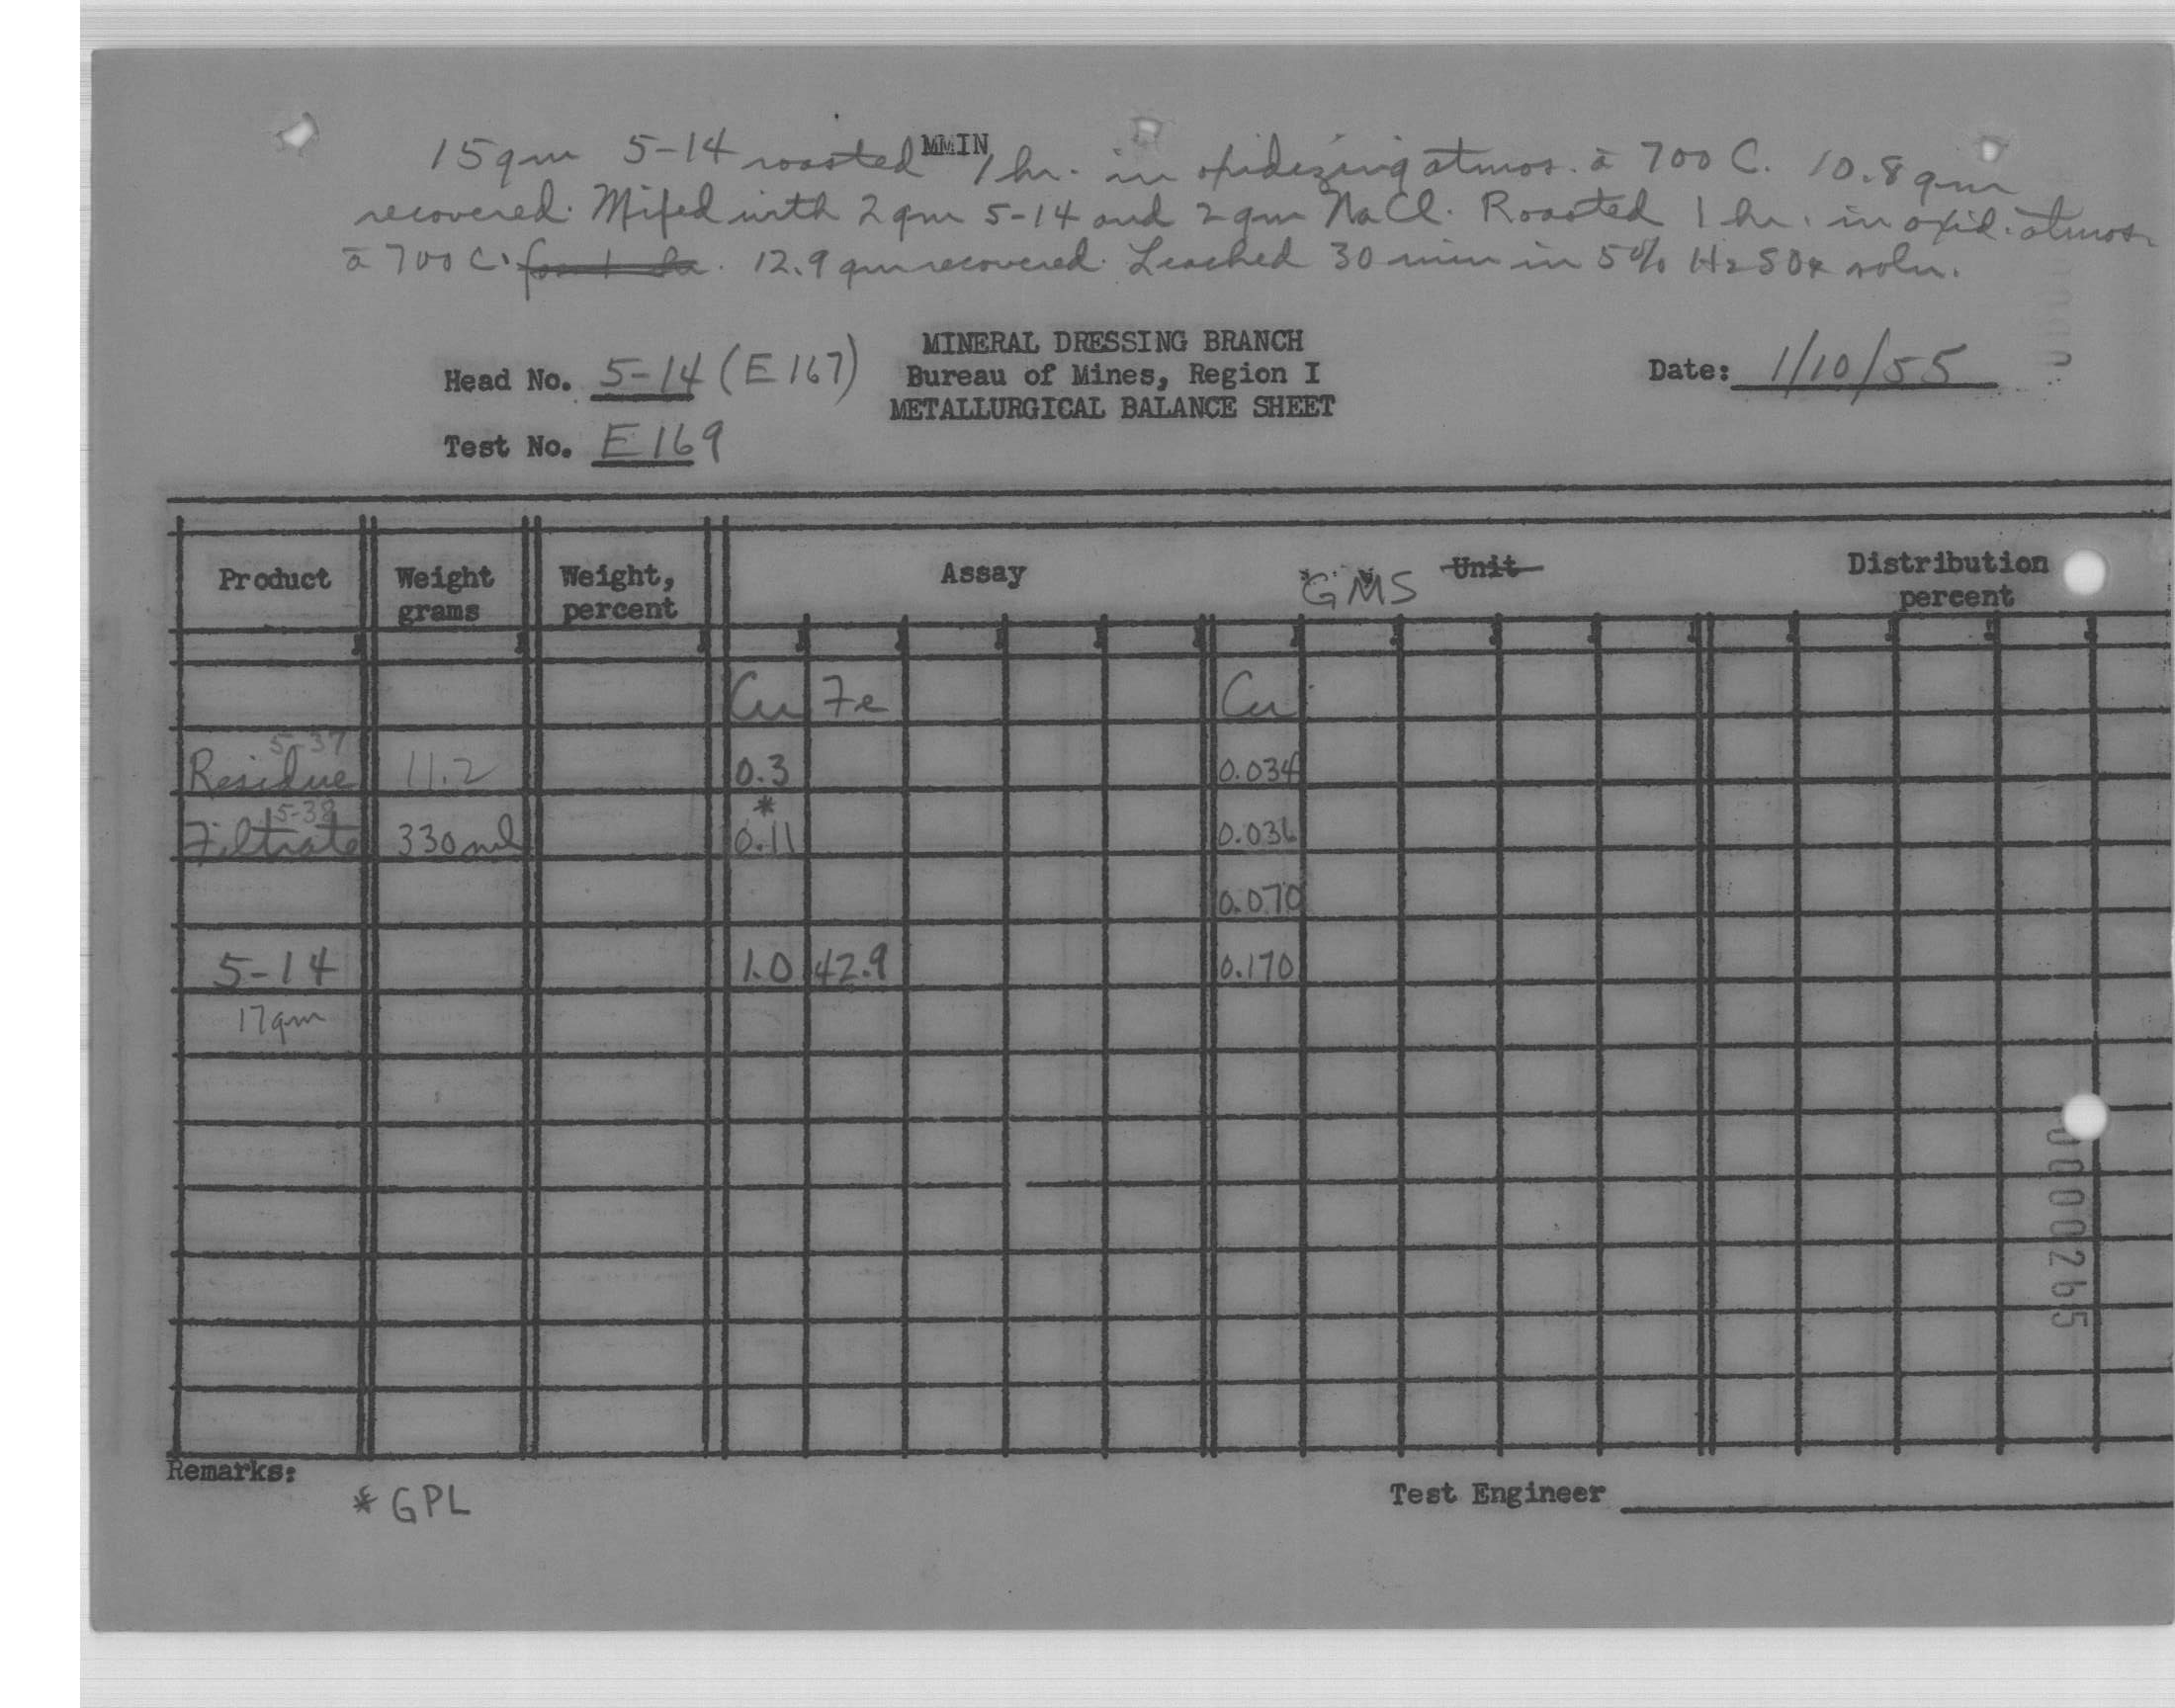 15gm 5-14 roasted MMIN 1 hr. in oxidizing atmos. ā 700 C. 10.8 gm
recovered. Mixed with 2 gm 5-14 and 2 gm NaCl. Roasted 1 hr. in oxid. atmos.
ā 700 C. for 1 hr. 12.9 gm recovered. Leached 30 min in 5% H2SO4 soln.
MINERAL DRESSING BRANCH
Head No. 5-14 (E167) Bureau of Mines, Region I Date: 1/10/55
METALLURGICAL BALANCE SHEET
Test No. E169
Product Weight grams Weight, percent Assay GMS Unit Distribution percent
Cu Fe Cu
5-37
Residue 11.2 0.3 0.034
5-38 *
Filtrate 330 ml 0.11 0.036
0.070
5-14 1.0 42.9 0.170
17gm
0000265
Remarks:
* GPL
Test Engineer